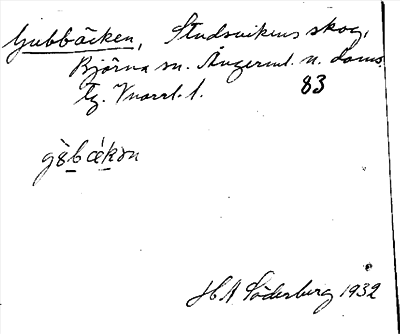 Gubbäcken, Studsvikens skog,
Björna sn. Ångerml. n. doms.
tg. Vnorrl. l. 83
gɵ̀bǽkən
H A Söderberg 1932